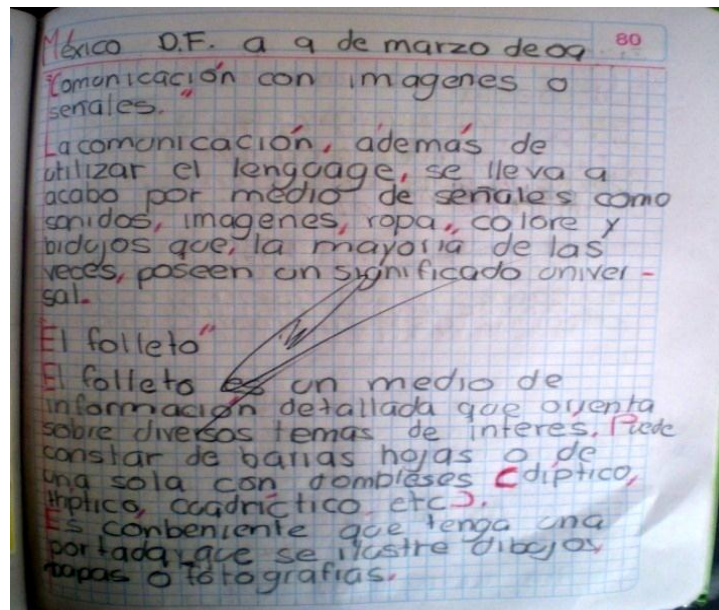 México D.F. a 9 de marzo de 09
80
"Comonicación con imagenes o
señales."
La comunicación, además de
utilizar el lenguage, se lleva a
acabo por medio de señales como
sonidos, imagenes, ropa, colore y
bidujos que, la mayoria de las
veces, poseen un significado univer-
sal.
El folleto"
El folleto es un medio de
información detallada que oryenta
sobre diversos temas de interes. Puede
constar de barias hojas o de
una sola con dombleses (díptico,
triptico, cuadríctico, etc).
Es conbeniente que tenga una
portada, que se ilustre dibujos,
mapas o fotografias.